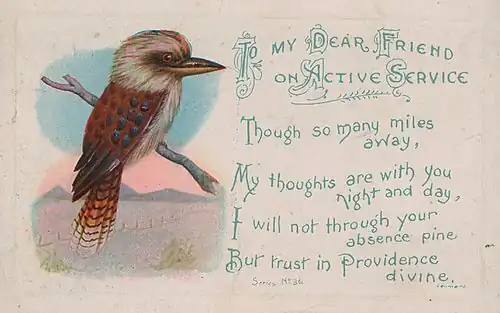 To my Dear Friend
on Active Service
Though so many miles
away,
My thoughts are with you
night and day,
I will not through your
absence pine
But trust in Providence
divine.
Series No 36.